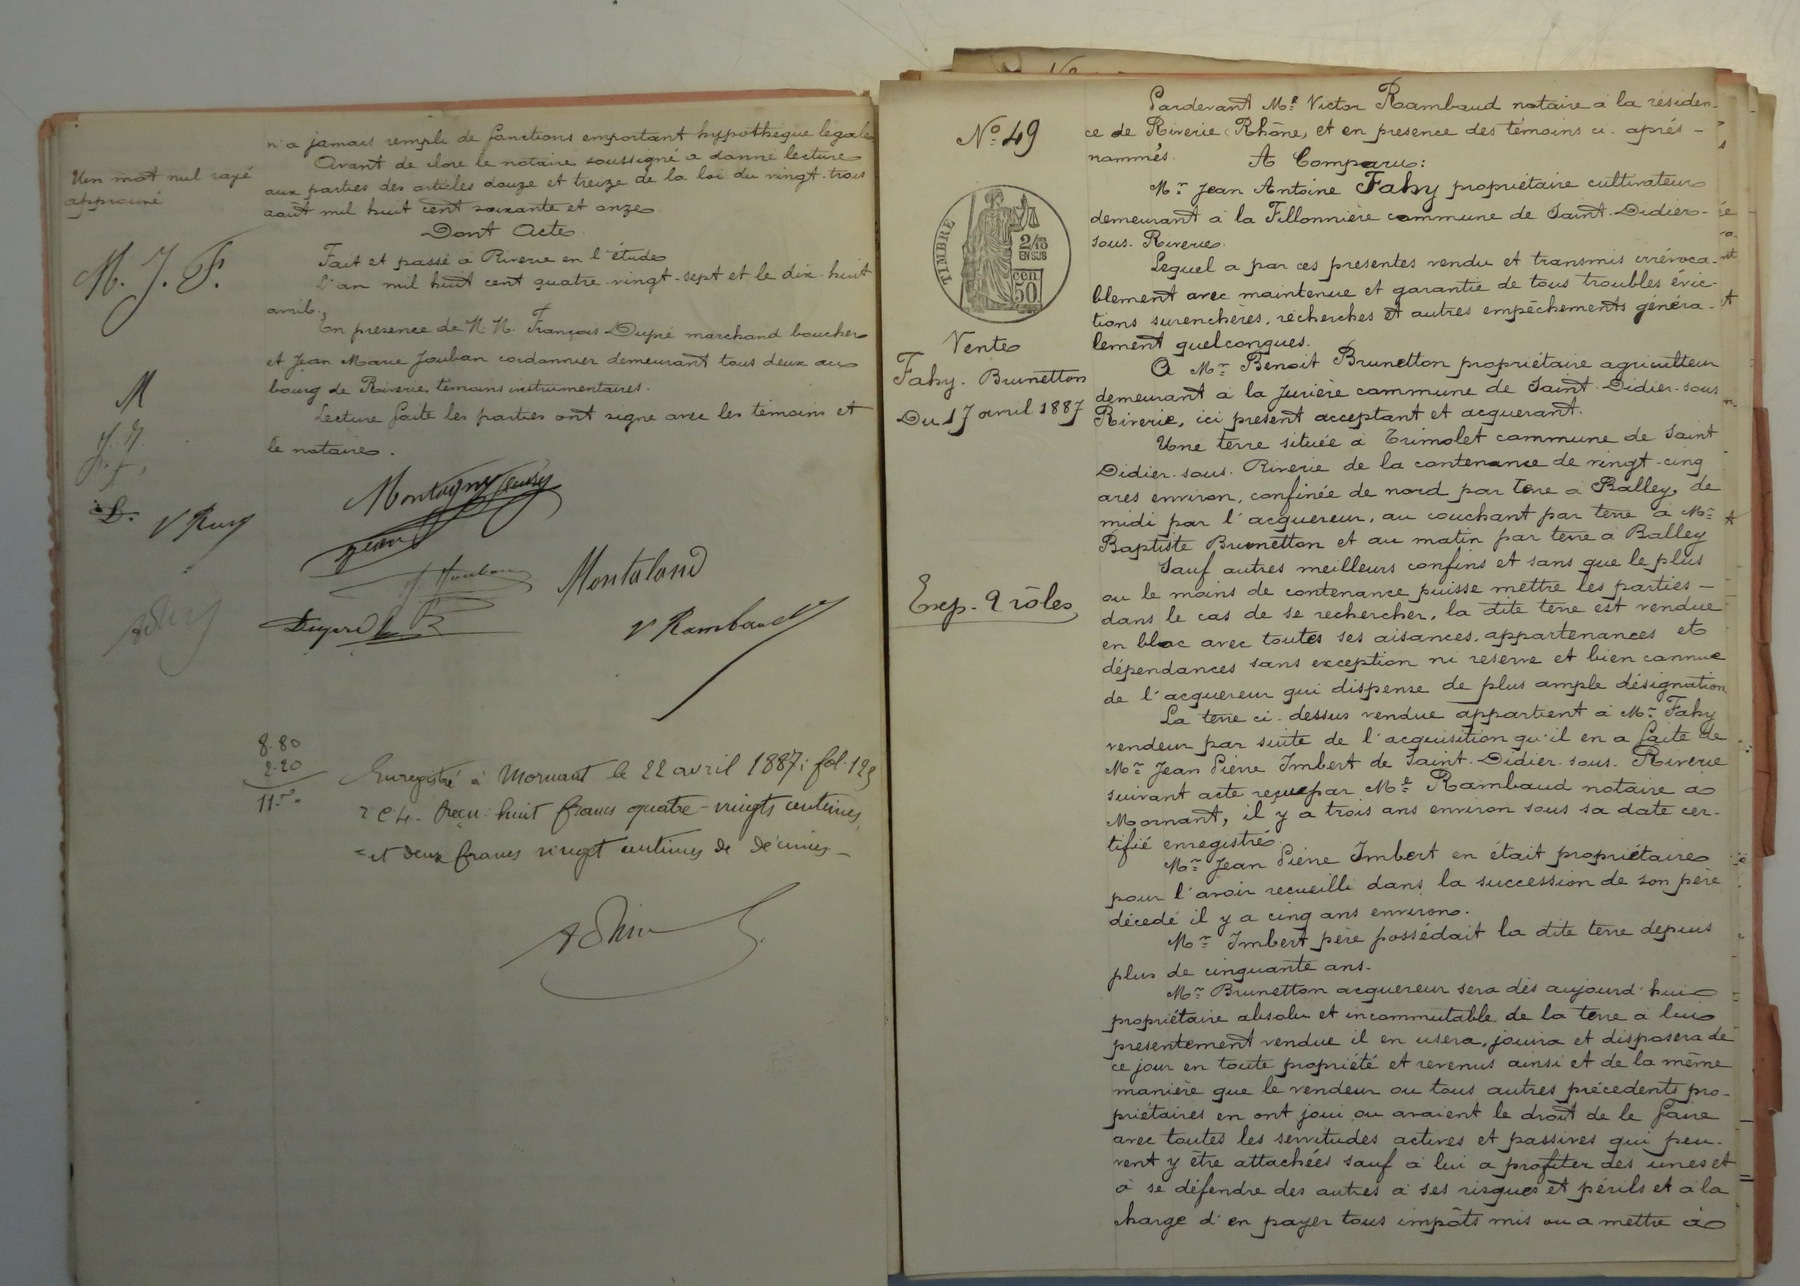 n'a jamais rempli de fonctions emportant hypothèque légale
Avant de clore le notaire soussigné a donné lecture
aux parties des articles douze et treize de la loi du vingt-trois
août mil huit cent soixante et onze.
Dont Acte
Fait et passé à Riverie en l'étude
L'an mil huit cent quatre-vingt-sept et le dix-huit
avril.
En présence de M.M. François Dupré marchand boucher
et Jean Marie Jouban cordonnier demeurant tous deux au
bourg de Riverie, témoins instrumentaires.
Lecture faite les parties ont signé avec les témoins et
le notaire.
Un mot nul rayé
approuvé
M. J. F.
M
J. J.
D.
V Ram
Montagny
Jouban
Montaland
Dupré
V Rambaud
8.80
2.20
11.
Enregistré à Mornant le 22 avril 1887: fol. 125
r° C 4. Reçu: huit francs quatre-vingts centimes,
et deux francs vingt centimes de décimes
No. 49
TIMBRE
2/10
EN SUS
50
cen
Vente
Fahy. Brunetton
Du 17 avril 1887
Exp. 2 rôles
Pardevant Me. Victor Rambaud notaire à la résiden-
ce de Riverie (Rhône) et en présence des témoins ci-après-
nommés.
A Comparu:
Mr. Jean Antoine Fahy propriétaire cultivateur
demeurant à la Fillonnière commune de Saint-Didier-
sous-Riverie.
Lequel a par ces présentes vendu et transmis irrévoca-
blement avec maintenue et garantie de tous troubles évic-
tions surenchères, recherches et autres empêchements généra-
lement quelconques.
A Mr. Benoit Brunetton propriétaire agriculteur
demeurant à la Jurière commune de Saint-Didier-sous
Riverie, ici présent acceptant et acquérant.
Une terre située à Trimolet commune de Saint
Didier-sous-Riverie de la contenance de vingt-cinq
ares environ, confinée de nord par terre à Balley, de
midi par l'acquéreur, au couchant par terre à Mr.
Baptiste Brunetton et au matin par terre à Balley
Sauf autres meilleurs confins et sans que le plus
ou le moins de contenance puisse mettre les parties-
dans le cas de se rechercher, la dite terre est vendue
en bloc avec toutes ses aisances, appartenances et
dépendances sans exception ni réserve et bien connue
de l'acquéreur qui dispense de plus ample désignation
La terre ci-dessus vendue appartient à Mr. Fahy
vendeur par suite de l'acquisition qu'il en a faite de
Mr. Jean Pierre Imbert de Saint-Didier-sous-Riverie
suivant acte reçu par Me. Rambaud notaire à
Mornant, il y a trois ans environ sous sa date cer-
tifié enregistré.
Mr. Jean Pierre Imbert en était propriétaire
pour l'avoir recueilli dans la succession de son père
décédé il y a cinq ans environ.
Mr. Imbert père possédait la dite terre depuis
plus de cinquante ans.
Mr. Brunetton acquéreur sera dès aujourd'hui
propriétaire absolu et incommutable de la terre à lui
présentement vendue il en usera, jouira et disposera de
ce jour en toute propriété et revenus ainsi et de la même
manière que le vendeur ou tous autres précédents pro-
priétaires en ont joui ou avaient le droit de le faire
avec toutes les servitudes actives et passives qui peu-
vent y être attachées sauf à lui à profiter des unes et
à se défendre des autres à ses risques et périls et à la
charge d'en payer tous impôts mis ou à mettre à